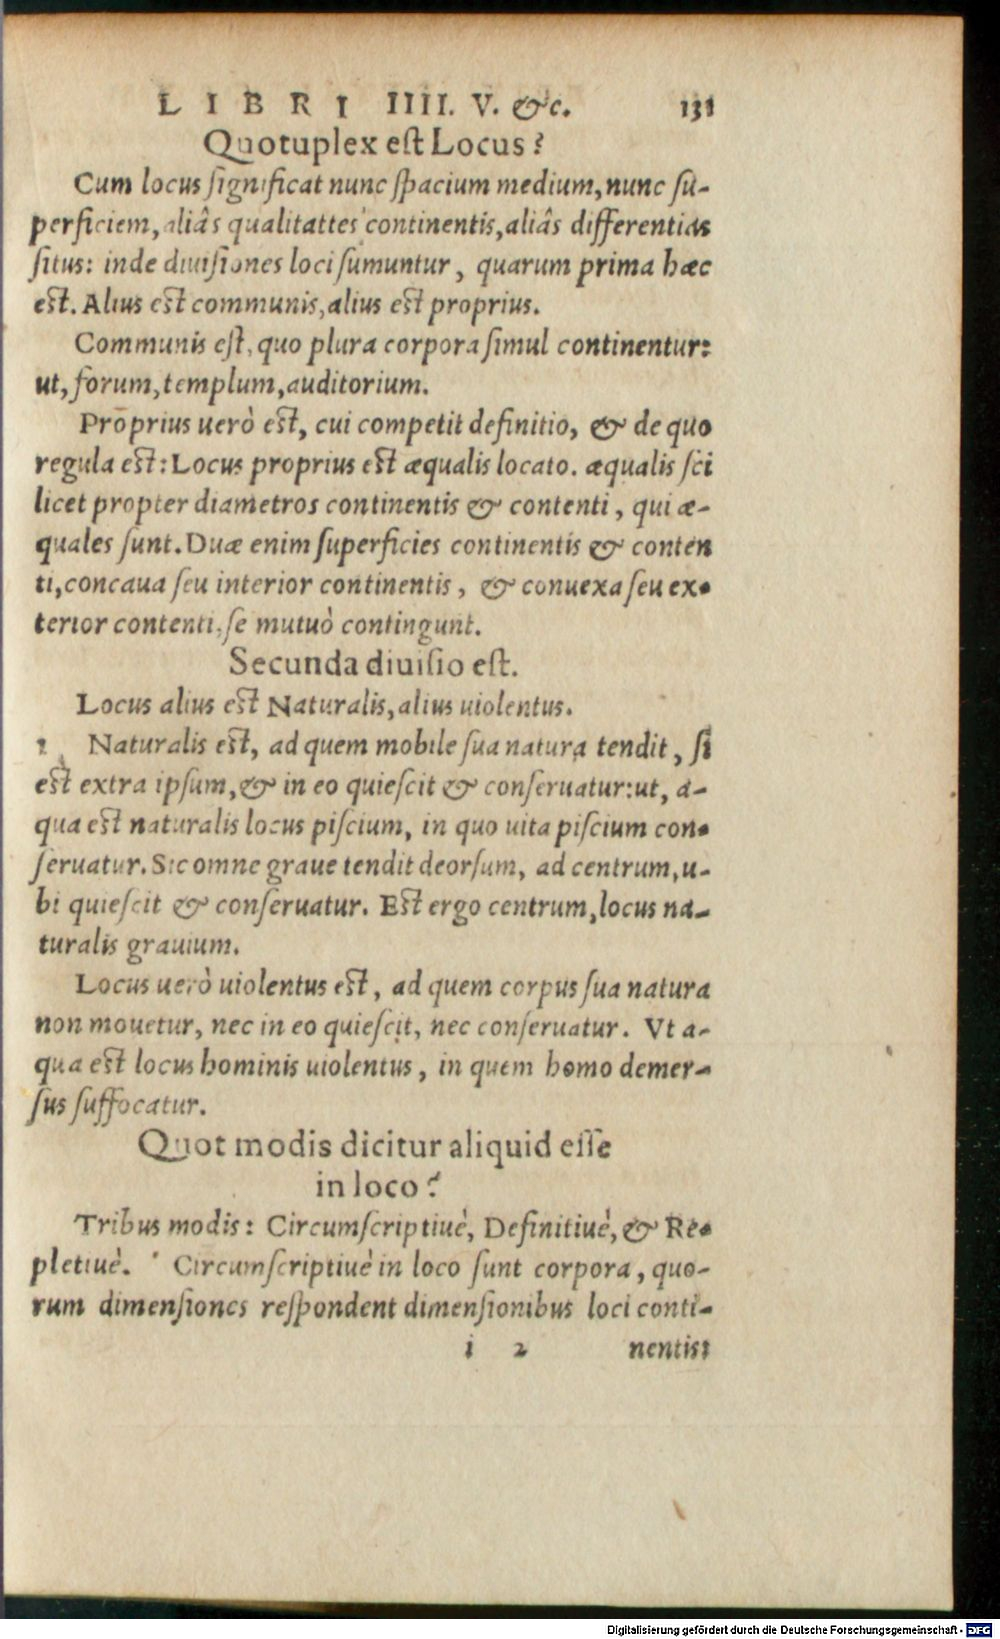 LIBRI IIII. V. &c. 131
Quotuplex est Locus?
Cum locus significat nunc spacium medium, nunc su-
perficiem, aliâs qualitattes continentis, aliâs differentias
situs: inde diuisiones loci sumuntur, quarum prima hæc
est. Alius est communis, alius est proprius.
Communis est, quo plura corpora simul continentur:
ut, forum, templum, auditorium.
Proprius uerò est, cui competit definitio, & de quo
regula est: Locus proprius est æqualis locato. æqualis sci
licet propter diametros continentis & contenti, qui æ-
quales sunt. Duæ enim superficies continentis & conten
ti, concaua seu interior continentis, & conuexa seu ex-
terior contenti, se mutuò contingunt.
Secunda diuisio est.
Locus alius est Naturalis, alius uiolentus.
1 Naturalis est, ad quem mobile sua natura tendit, si
est extra ipsum, & in eo quiescit & conseruatur: ut, a-
qua est naturalis locus piscium, in quo uita piscium con-
seruatur. Sic omne graue tendit deorsum, ad centrum, u-
bi quiescit & conseruatur. Est ergo centrum, locus na-
turalis grauium.
Locus uerò uiolentus est, ad quem corpus sua natura
non mouetur, nec in eo quiescit, nec conseruatur. Vt a-
qua est locus hominis uiolentus, in quem homo demer-
sus suffocatur.
Quot modis dicitur aliquid esse
in loco?
Tribus modis: Circumscriptiuè, Definitiuè, & Re-
pletiuè. Circumscriptiuè in loco sunt corpora, quo-
rum dimensiones respondent dimensionibus loci conti-
i 2 nentis:
Digitalisierung gefördert durch die Deutsche Forschungsgemeinschaft - DFG